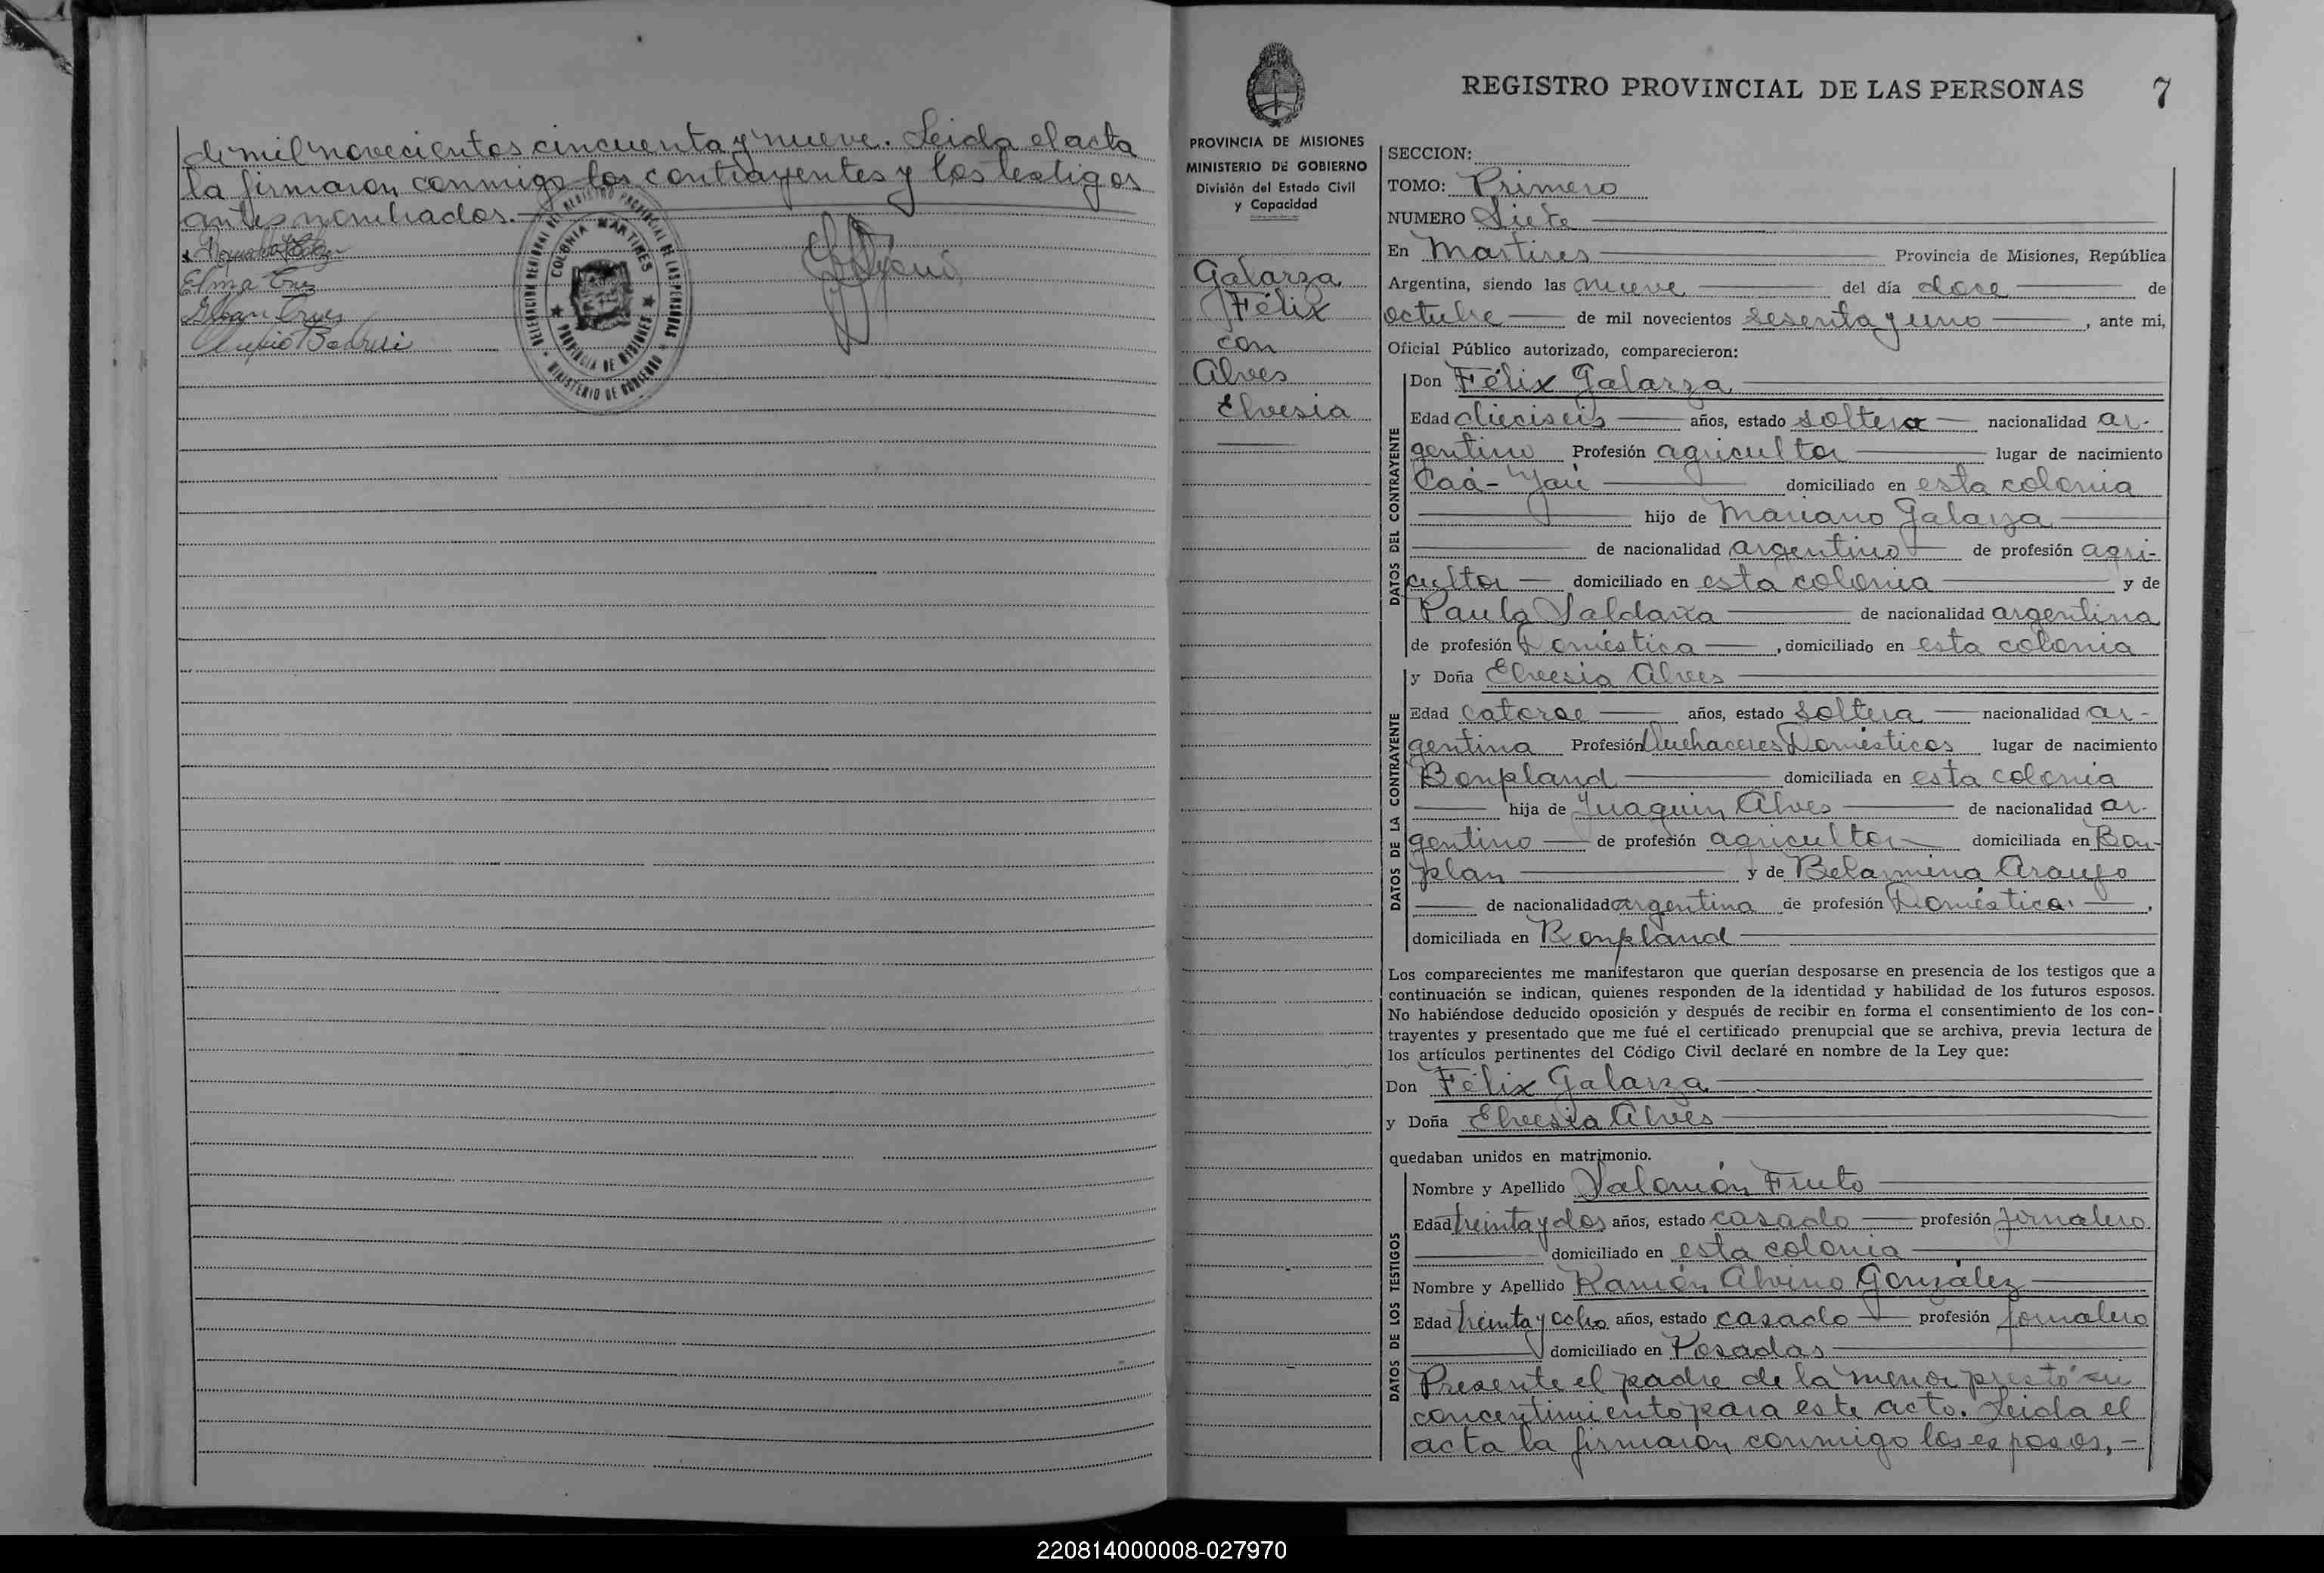 de mil novecientos cincuenta y nueve. Leida el acta
la firmaron conmigo los contrayentes y los testigos
antes nombrados.
Elma Cruz
COLONIA MARTIRES
PROVINCIA DE MISIONES
DELEGACION REGIONAL DEL REGISTRO PROVINCIAL DE LAS PERSONAS
MINISTERIO DE GOBIERNO
PROVINCIA DE MISIONES
MINISTERIO DE GOBIERNO
División del Estado Civil
y Capacidad
Galarza
Félix
con
Alves
Elvesia
REGISTRO PROVINCIAL DE LAS PERSONAS 7
SECCION:
TOMO: Primero
NUMERO Siete
En Martires Provincia de Misiones, República
Argentina, siendo las nueve del día doce de
octubre de mil novecientos sesenta y uno, ante mi,
Oficial Público autorizado, comparecieron:
DATOS DEL CONTRAYENTE
Don Félix Galarza
Edad dieciseis años, estado soltero nacionalidad ar-
gentino Profesión agricultor lugar de nacimiento
Caá-Yarí domiciliado en esta colonia
hijo de Mariano Galarza
de nacionalidad argentino de profesión agri-
cultor domiciliado en esta colonia y de
Paula Saldaña de nacionalidad argentina
de profesión Doméstica, domiciliado en esta colonia
DATOS DE LA CONTRAYENTE
y Doña Elvesia Alves
Edad catorce años, estado soltera nacionalidad ar-
gentina Profesión Quehaceres Domésticos lugar de nacimiento
Bonpland domiciliada en esta colonia
hija de Juaquin Alves de nacionalidad ar-
gentino de profesión agricultor domiciliada en Bon-
plan y de Belarmina Araujo
de nacionalidad argentina de profesión Doméstica,
domiciliada en Bonpland
Los comparecientes me manifestaron que querían desposarse en presencia de los testigos que a
continuación se indican, quienes responden de la identidad y habilidad de los futuros esposos.
No habiéndose deducido oposición y después de recibir en forma el consentimiento de los con-
trayentes y presentado que me fué el certificado prenupcial que se archiva, previa lectura de
los artículos pertinentes del Código Civil declaré en nombre de la Ley que:
Don Félix Galarza
y Doña Elvesia Alves
quedaban unidos en matrimonio.
DATOS DE LOS TESTIGOS
Nombre y Apellido Salomón Fruto
Edad treinta y dos años, estado casado profesión jornalero
domiciliado en esta colonia
Nombre y Apellido Ramón Alvino González
Edad treinta y ocho años, estado casado profesión jornalero
domiciliado en Posadas
Presente el padre de la menor prestó su
concentimiento para este acto. Leida el
acta la firmaron conmigo los esposos,-
220814000008-027970